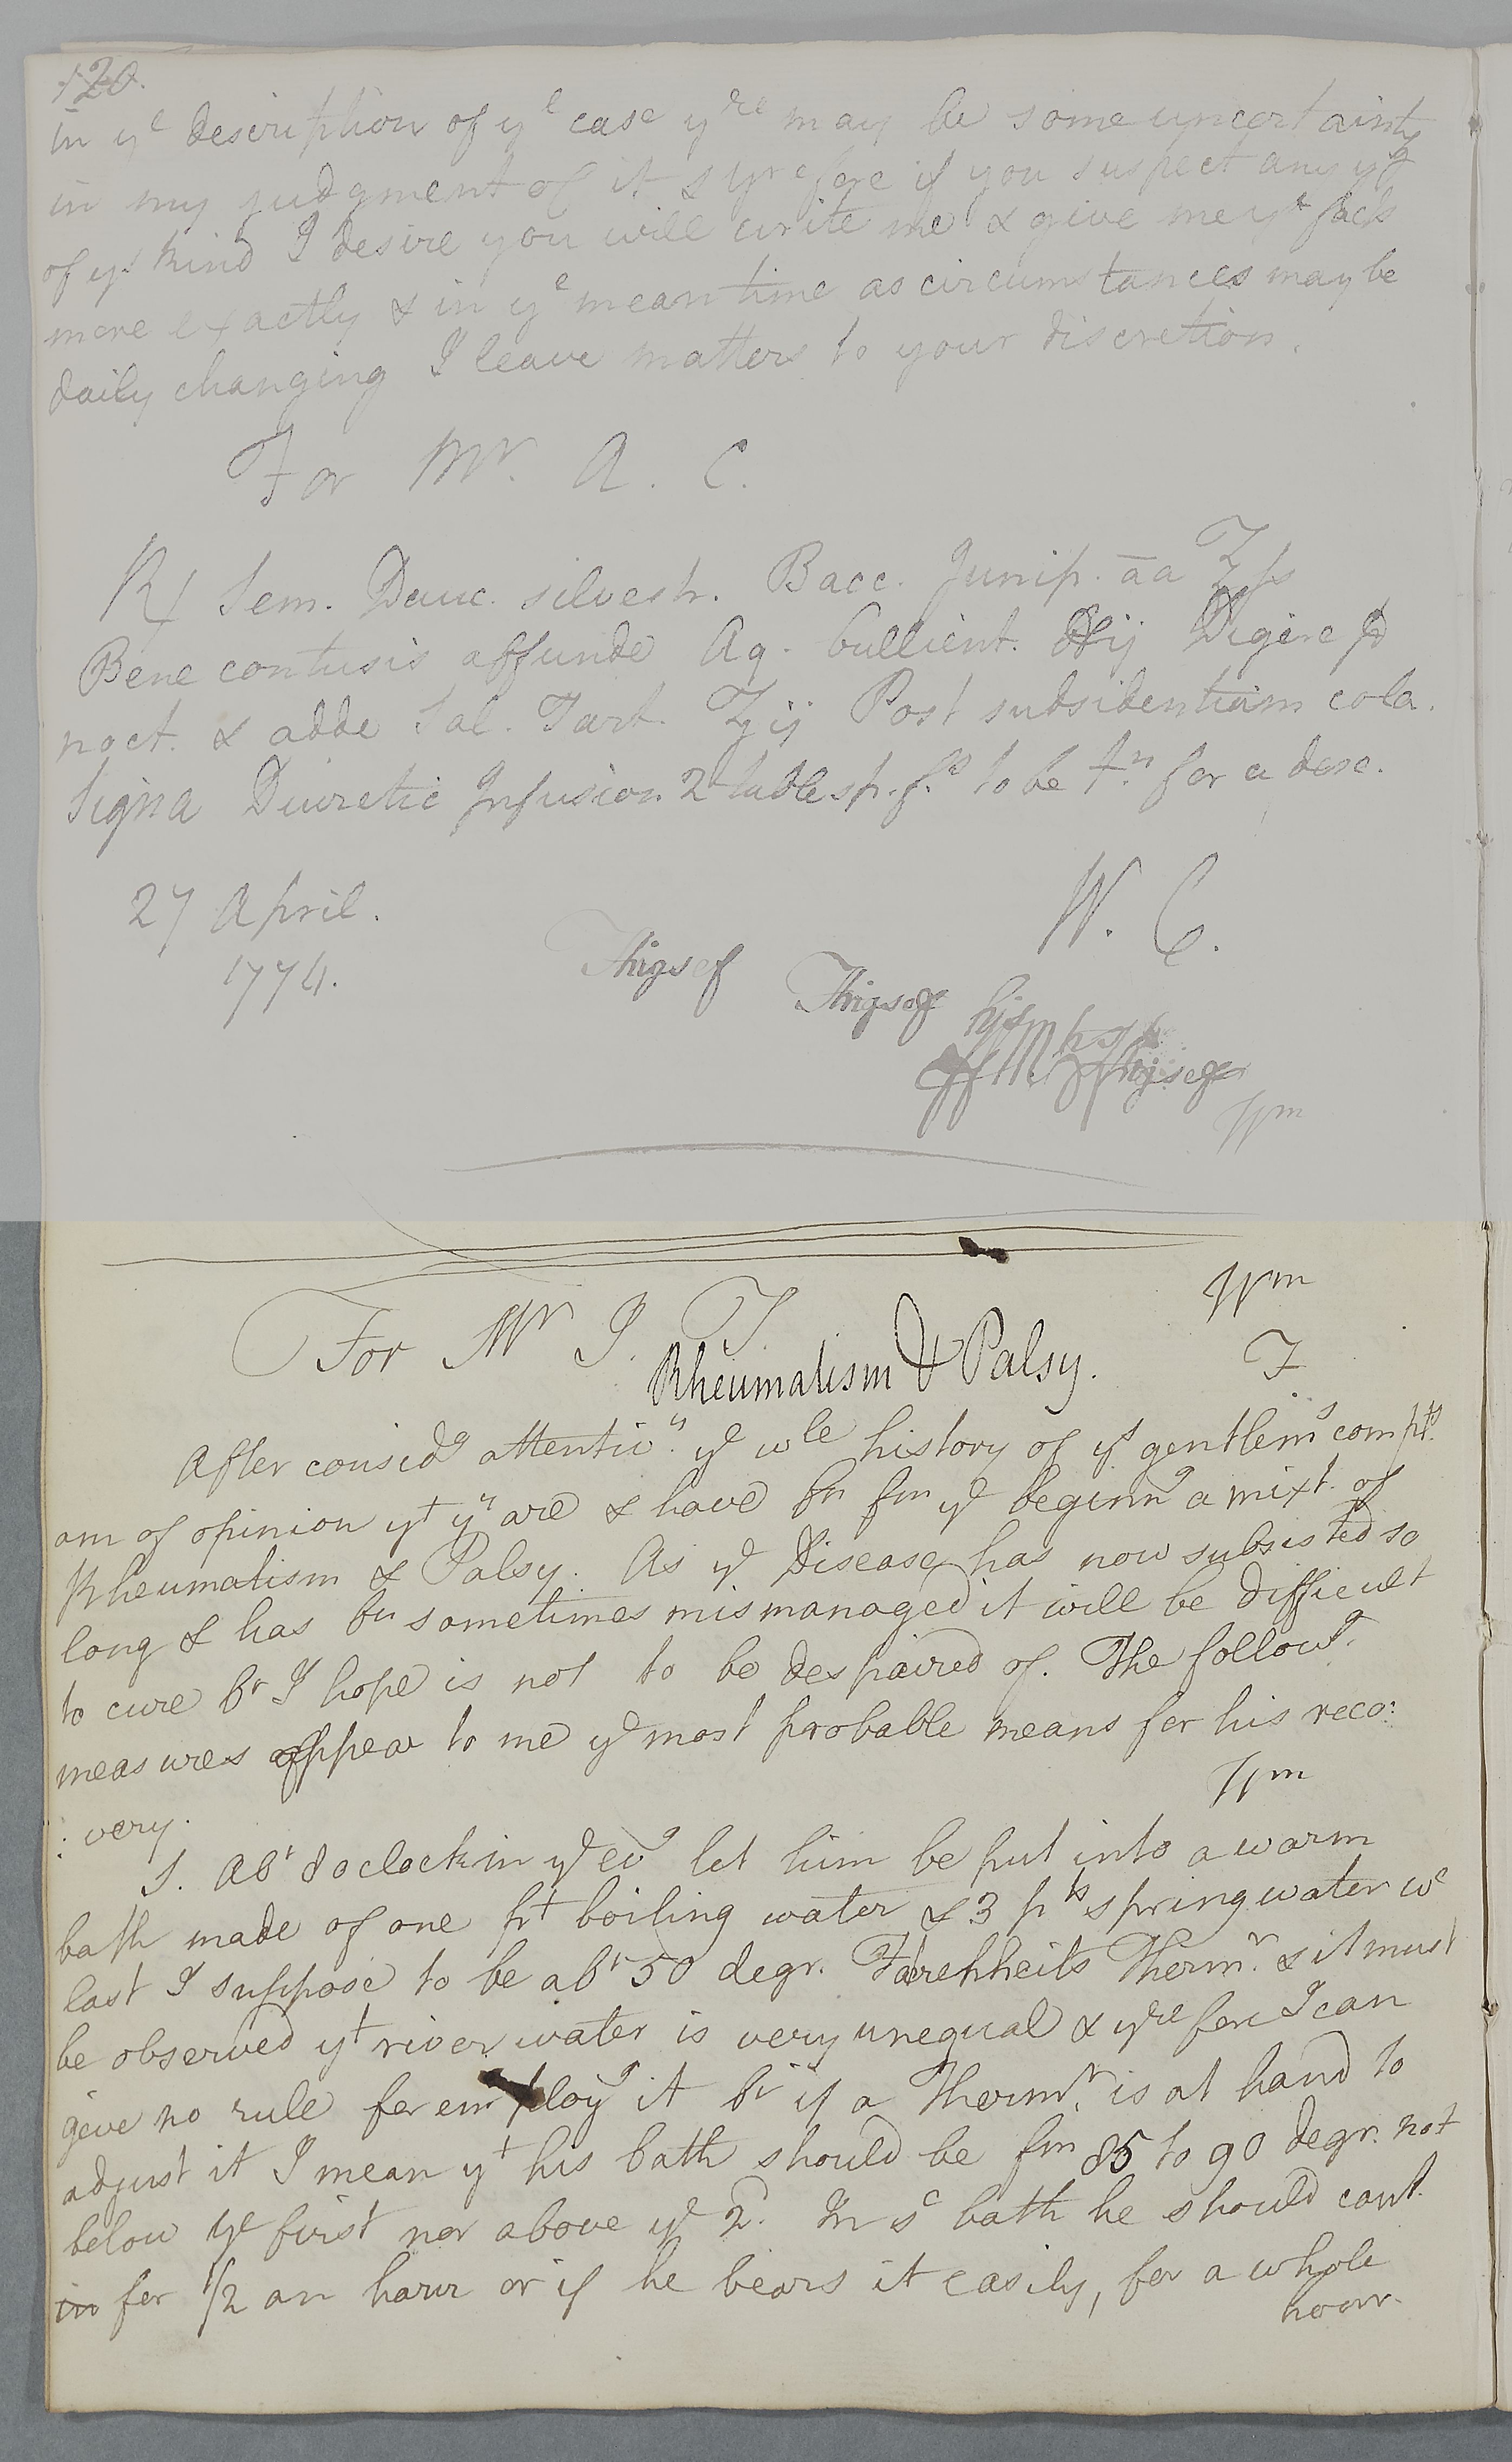 120.
in ye description of ye case yre may be some uncertainty
in my judgment of it & yrefore if you suspect any yg
of ys kind I desire you will write me & give me ye facts
more exactly & in ye mean time as circumstances may be
daily changing I leave matters to your discretion.
For Mr. A. C.
R/ Sem. Dauc. silvestr. Bacc. Junip. āa ℥ſs
Bene contusis affunde Aq. bullient. ℔ij Digere pr
noct. & adde Sal. Tart. ʒij Post subsidentiam cola.
Signa Diuretic Infusion 2 table sp. fs to be tn. for a dose.
27 April. W. C.
1774.
Wm
Wm
For Mr J. T.
Rheumatism & Palsy.
After considg attentiv. ye wle history of ys gentlems compts.
am of opinion yt yy are & have bn fm ye beginng a mixt. of
Rheumatism & Palsy. As ye Disease has now subsisted so
long & has bn sometimes mismanaged it will be difficult
to cure bt I hope is not to be despaired of. The followg.
measures appear to me ye most probable means for his reco:
Wm
: very.
1. Abt 8 oclock in ye evg let him be put into a warm
bath made of one pt boiling water & 3 pts spring water wc
last I suppose to be abt 50 degr. Farenheits Thermr. & it must
be observed yt river water is very unequal & yrefore I can
give no rule for employg it bt if a Thermr. is at hand to
adjust it I mean yt his bath should be fm 85 to 90 degr. not
below ye first nor above ye 2d. In sc bath he should cont.
in for 1/2 an hour or if he bears it easily, for a whole
hour.